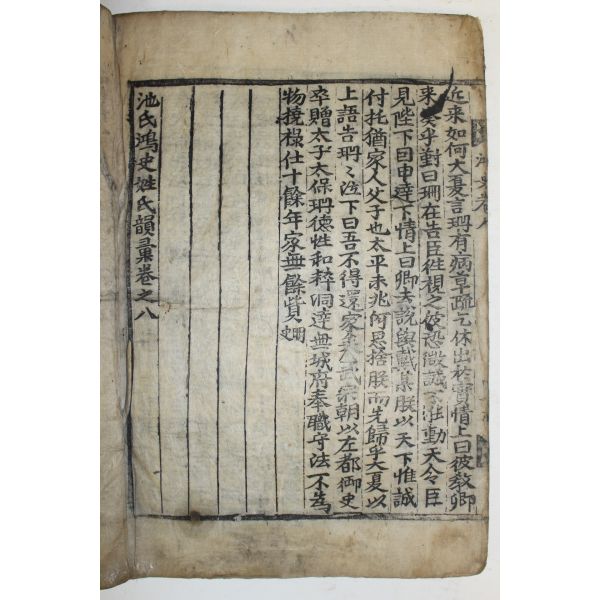 鴻史卷八
近来如何大夏言珊有病草疏乞休出於實情上曰彼教卿
来奏乎對曰珊在告臣徃視之彼恐微誠不能動天令臣
見陛下曰申達下情上曰卿去說與戴某朕以天下惟誠
付托猶家人父子也太平未兆何忍捨朕而先歸乎大夏以
上語告珊〻泣下曰吾不得還家矣武宗朝以左都御史
卒贈太子太保珊德性和粹洞達無城府奉職守法不為
物撓祿仕十餘年家無餘貲明史
池氏鴻史姓氏韻彙卷之八